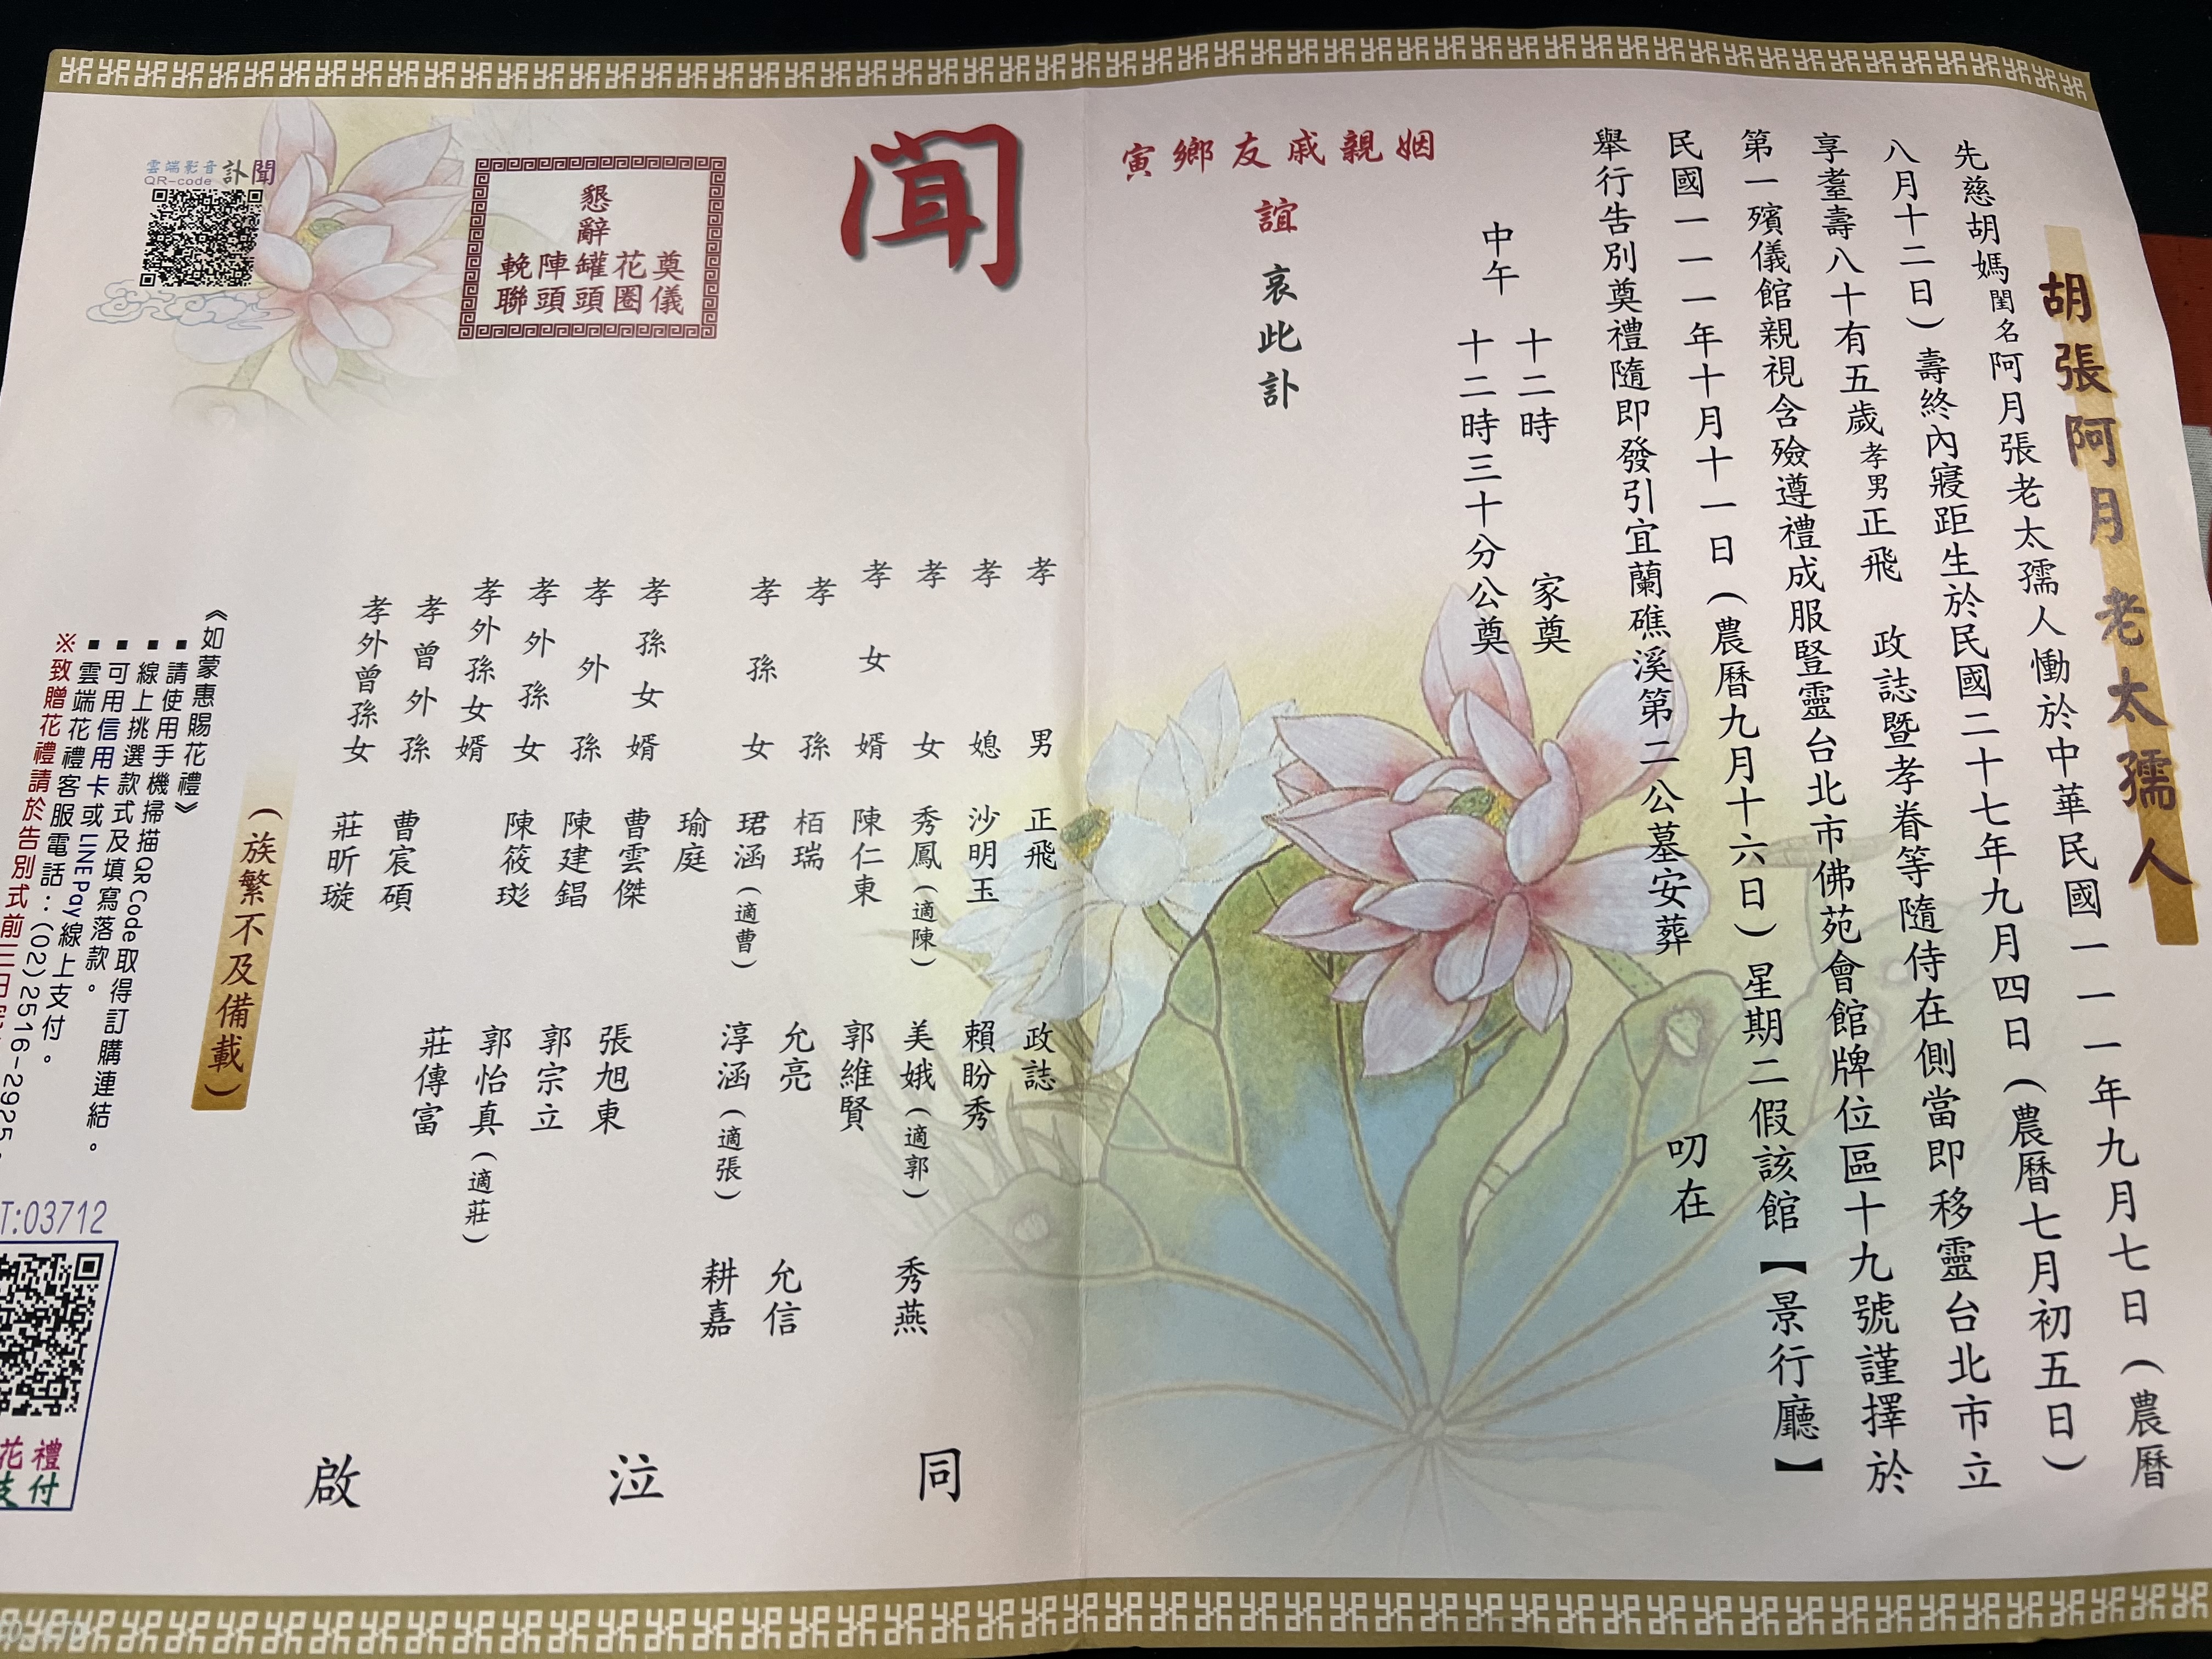 胡張阿月 老太孺人
先慈胡媽閨名阿月張老太孺人慟於中華民國一一一年九月七日（農曆
八月十二日）壽終內寢距生於民國二十七年九月四日（農曆七月初五日）
享耋壽八十有五歲孝男正飛 政誌暨孝眷等隨侍在側當即移靈台北市立
第一殯儀館親視含殮遵禮成服豎靈台北市佛苑會館牌位區十九號謹擇於
民國一一一年十月十一日（農曆九月十六日）星期二假該館【景行廳】
舉行告別奠禮隨即發引宜蘭礁溪第二公墓安葬 叨在
中午 十二時 家奠
十二時三十分公奠
姻親戚友鄉寅
誼 哀此訃
聞
懇辭
奠儀
花圈
罐頭
陣頭
輓聯
孝男 正飛 政誌
孝媳 沙明玉 賴盼秀
孝女 秀鳳（適陳） 美娥（適郭） 秀燕
孝女婿 陳仁東 郭維賢
孝孫 栢瑞 允亮 允信
孝孫女 珺涵（適曹） 淳涵（適張） 耕嘉
瑜庭
孝孫女婿 曹雲傑 張旭東
孝外孫 陳建錩 郭宗立
孝外孫女 陳筱玹 郭怡真（適莊）
孝外孫女婿 莊傳富
孝曾外孫 曹宸碩
孝外曾孫女 莊昕璇
同泣啟
（族繁不及備載）
《如蒙惠賜花禮》
▪請使用手機掃描QR Code取得訂購連結。
▪線上挑選款式及填寫落款。
▪可用信用卡或LINE Pay線上支付。
▪雲端花禮客服電話：(02)2516-2925。
※致贈花禮請於告別式前三日
雲端影音 訃聞
QR-code
T:03712
花禮
支付